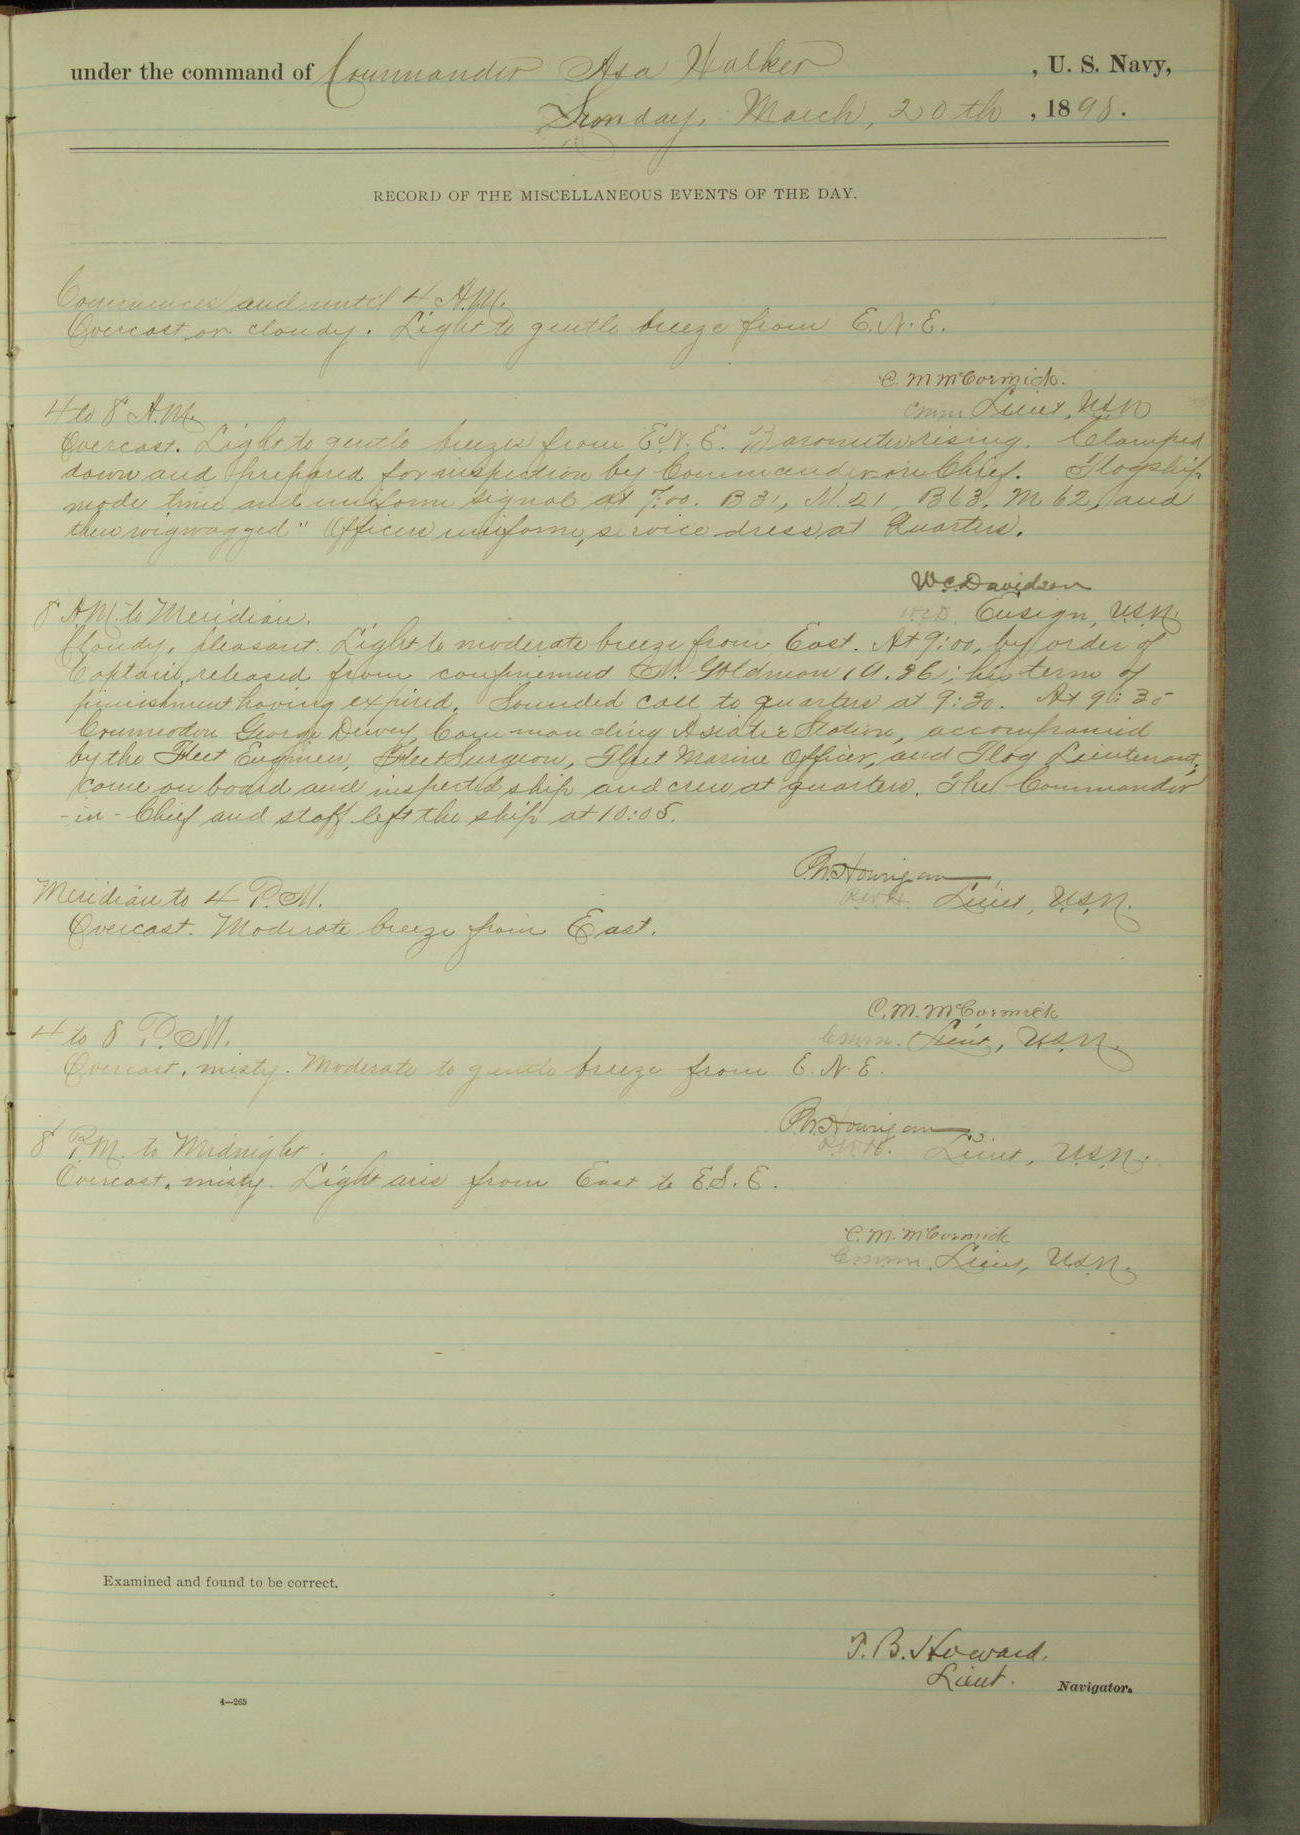 under the command of Commander Asa Walker, U. S. Navy,
Sunday, March, 20th, 1898.
RECORD OF THE MISCELLANEOUS EVENTS OF THE DAY.
Commences and until 4 A.M.
Overcast or cloudy. Light to gentle breeze from E.N.E.
C. M McCormick.
CMM Lieut, USN
4 to 8 A.M.
Overcast. Light to gentle breezes from E.N.E. Barometer rising. Clamped
down and prepared for inspection by Commander-in Chief. Flagship
made time and uniform signal at 7.00. B31, N.21, B63, M 62, and
then wigwagged " Officers uniform, service dress at Quarters.
W.C. Davidson
WCD. Ensign, U.S.N.
8 AM. to Meridian.
Cloudy, pleasant. Light to moderate breeze from East. At 9:00, by order of
Captain, released from confinement M. Goldman (A. 36; his term of
punishment having expired. Sounded call to quarters at 9:30. At 9:35
Commodore George Dewey, Commanding Asiatic Station, accompanied
by the Fleet Engineer, Fleet Surgeon, Fleet Marine Officer, and Flag Lieutenant,
came on board and inspected ship and crew at quarters. The Commander
-in-Chief and staff left the ship at 10:05.
P.W. Hourigan,
P.W.H. Lieut, U.S.N.
Meridian to 4 P.M.
Overcast. Moderate breeze from East.
C. M. McCormick
CMM. Lieut, U.S.N.
4 to 8 P.M.
Overcast, misty. Moderate to gentle breeze from E.N.E.
P.W. Hourigan
P.W.H. Lieut, U.S.N.
8 P.M. to Midnight.
Overcast, misty. Light airs from East to E.S.E.
C. M. McCormick
CMM. Lieut, U.S.N.
Examined and found to be correct.
T. B. Howard.
Lieut. Navigator.
4—265